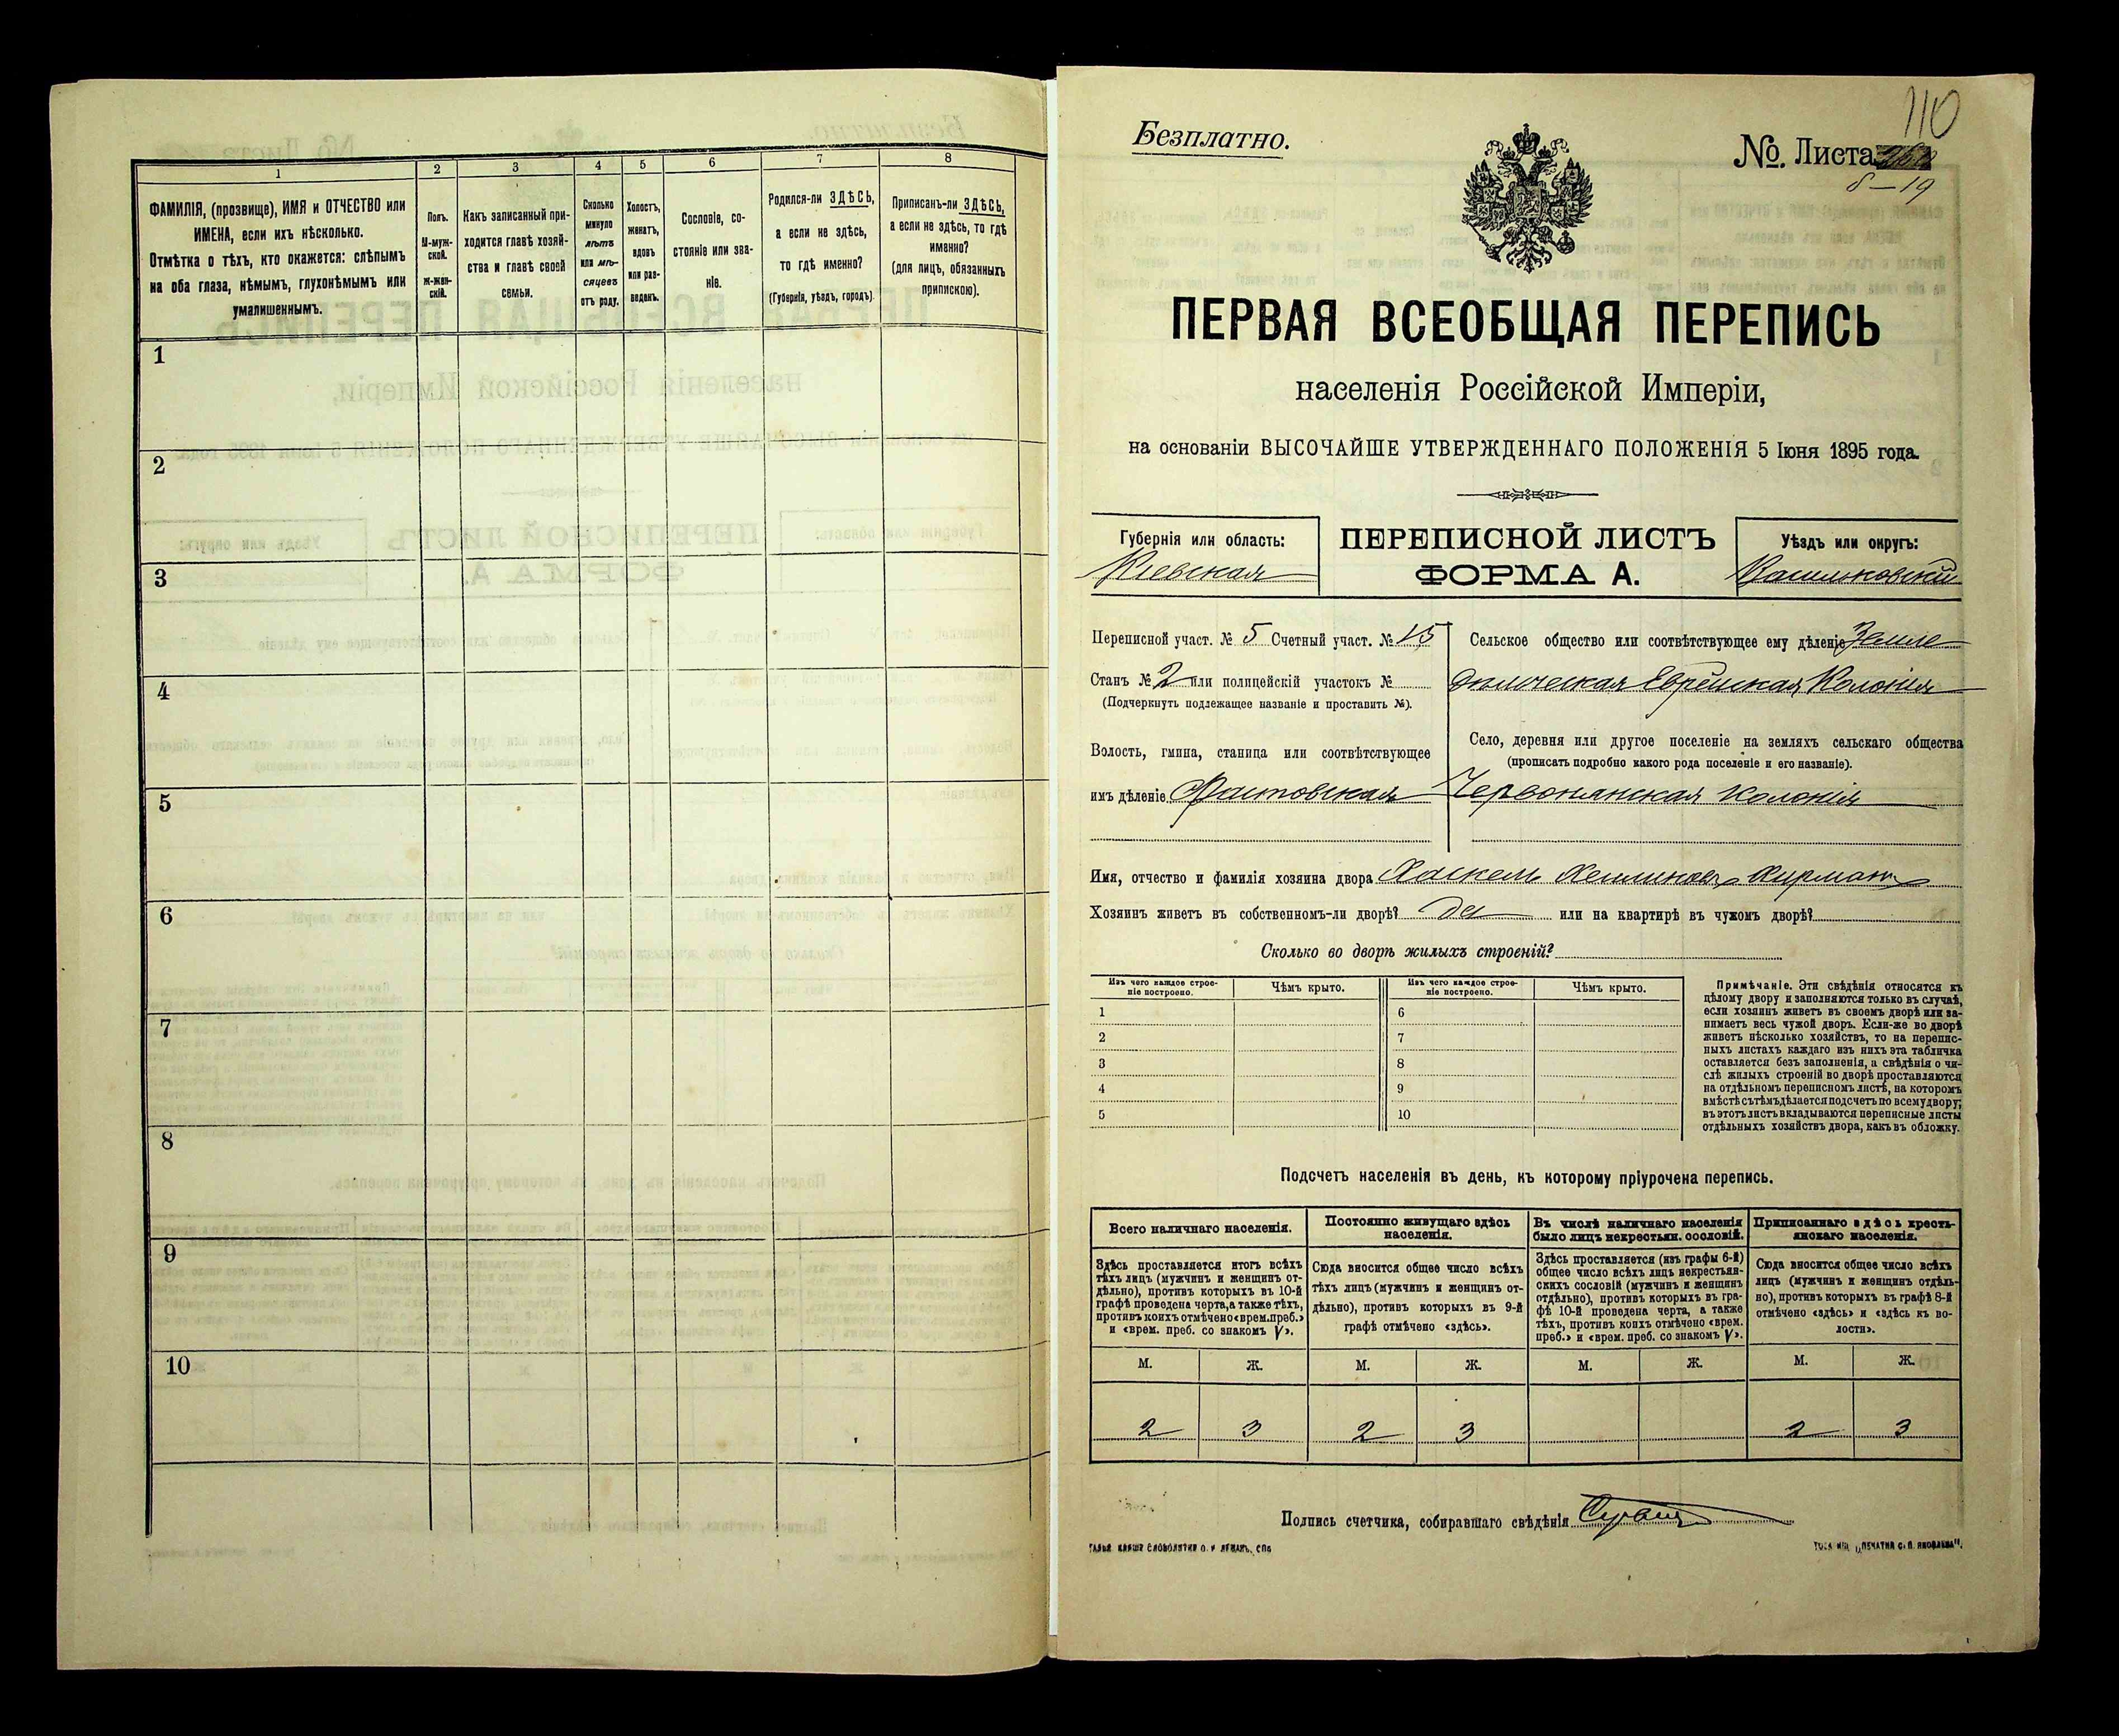 1
2
3
4
5
6
7
8
ФАМИЛІЯ, (прозвище), ИМЯ и ОТЧЕСТВО или
ИМЕНА, если ихъ нѣсколько.
Отмѣтка о тѣхъ, кто окажется: слѣпымъ
на оба глаза, нѣмымъ, глухонѣмымъ или
умалишеннымъ.
Полъ.
М-муж-
ской.
Ж-жен-
скій.
Какъ записанный при-
ходится главѣ хозяй-
ства и главѣ своей
семьи.
Сколько
минуло
лѣтъ
или мѣ-
сяцевъ
отъ роду.
Холостъ,
женатъ,
вдовъ
или раз-
веденъ.
Сословіе, со-
стояніе или зва-
ніе.
Родился-ли ЗДѢСЬ,
а если не здѣсь,
то гдѣ именно?
(Губернія, уѣздъ, городъ)
Приписанъ-ли ЗДѢСЬ,
а если не здѣсь, то гдѣ
именно?
(для лицъ, обязанныхъ
припискою).
1
2
3
4
5
6
7
8
9
10
110
Безплатно.
№ Листа
8—19
ПЕРВАЯ ВСЕОБЩАЯ ПЕРЕПИСЬ
населенія Россійской Имперіи,
на основаніи ВЫСОЧАЙШЕ УТВЕРЖДЕННАГО ПОЛОЖЕНІЯ 5 Іюня 1895 года.
Губернія или область:
Кіевская
ПЕРЕПИСНОЙ ЛИСТЪ
ФОРМА А.
Уѣздъ или округъ:
Васильковскій
Переписной участ. № 5 Счетный участ. № 15
Станъ № 2 или полицейскій участокъ №
(Подчеркнуть подлежащее названіе и проставить №).
Волость, гмина, станица или соотвѣтствующее
имъ дѣленіе Фастовская
Сельское общество или соотвѣтствующее ему дѣленіе Земле
дѣльческая Еврейская Колонія
Село, деревня или другое поселеніе на земляхъ сельскаго общества
(прописать подробно какого рода поселеніе и его названіе).
Червонянская колонія
Имя, отчество и фамилія хозяина двора Хаскель
Хозяинъ живетъ въ собственномъ-ли дворѣ? да или на квартирѣ въ чужомъ дворѣ?
Сколько во дворѣ жилыхъ строеній?
Изъ чего каждое строе-
ніе построено.
Чѣмъ крыто.
Изъ чего каждое строе-
ніе построено.
Чѣмъ крыто.
1
6
2
7
3
8
4
9
5
10
Примѣчаніе. Эти свѣдѣнія относятся къ
цѣлому двору и заполняются только въ случаѣ,
если хозяинъ живетъ въ своемъ дворѣ или за-
нимаетъ весь чужой дворъ. Если-же во дворѣ
живетъ нѣсколько хозяйствъ, то на перепис-
ныхъ листахъ каждаго изъ нихъ эта табличка
оставляется безъ заполненія, а свѣдѣнія о чи-
слѣ жилыхъ строеній во дворѣ проставляются
на отдѣльномъ переписномъ листѣ, на которомъ
вмѣстѣ съ тѣмъ дѣлается подсчетъ по всему двору;
въ этотъ листъ вкладываются переписные листы
отдѣльныхъ хозяйствъ двора, какъ въ обложку.
Подсчетъ населенія въ день, къ которому пріурочена перепись.
Всего наличнаго населенія.
Постоянно живущаго здѣсь
населенія.
Въ числѣ наличнаго населенія
было лицъ некрестьян. сословій.
Приписаннаго здѣсь кресть-
янскаго населенія.
Здѣсь проставляется итогъ всѣхъ
тѣхъ лицъ (мужчинъ и женщинъ от-
дѣльно), противъ которыхъ въ 10-й
графѣ проведена черта, а также тѣхъ,
противъ коихъ отмѣчено «врем. преб.»
и «врем. преб. со знакомъ V».
Сюда вносится общее число всѣхъ
тѣхъ лицъ (мужчинъ и женщинъ от-
дѣльно), противъ которыхъ въ 9-й
графѣ отмѣчено «здѣсь».
Здѣсь проставляется (изъ графы 6-й)
общее число всѣхъ лицъ некрестьян-
скихъ сословій (мужчинъ и женщинъ
отдѣльно), противъ которыхъ въ гра-
фѣ 10-й проведена черта, а также
тѣхъ, противъ коихъ отмѣчено «врем.
преб.» и «врем. преб. со знакомъ V».
Сюда вносится общее число всѣхъ
лицъ (мужчинъ и женщинъ отдѣль-
но), противъ которыхъ въ графѣ 8-й
отмѣчено «здѣсь» и «здѣсь къ во-
лости».
М.
Ж.
М.
Ж.
М.
Ж.
М.
Ж.
2
3
2
3
2
3
Подпись счетчика, собиравшаго свѣдѣнія